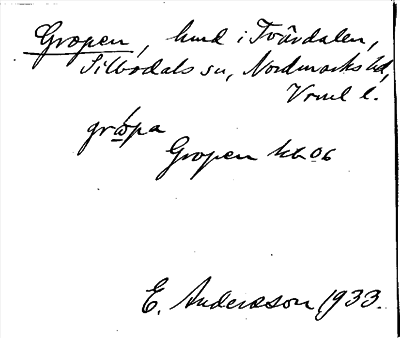 Gropen, hmd i Tvärdalen,
Silbodals sn, Nordmarks hd,
Vrml l.
grὼpa
Gropen kb 06
E. Andersson 1933.